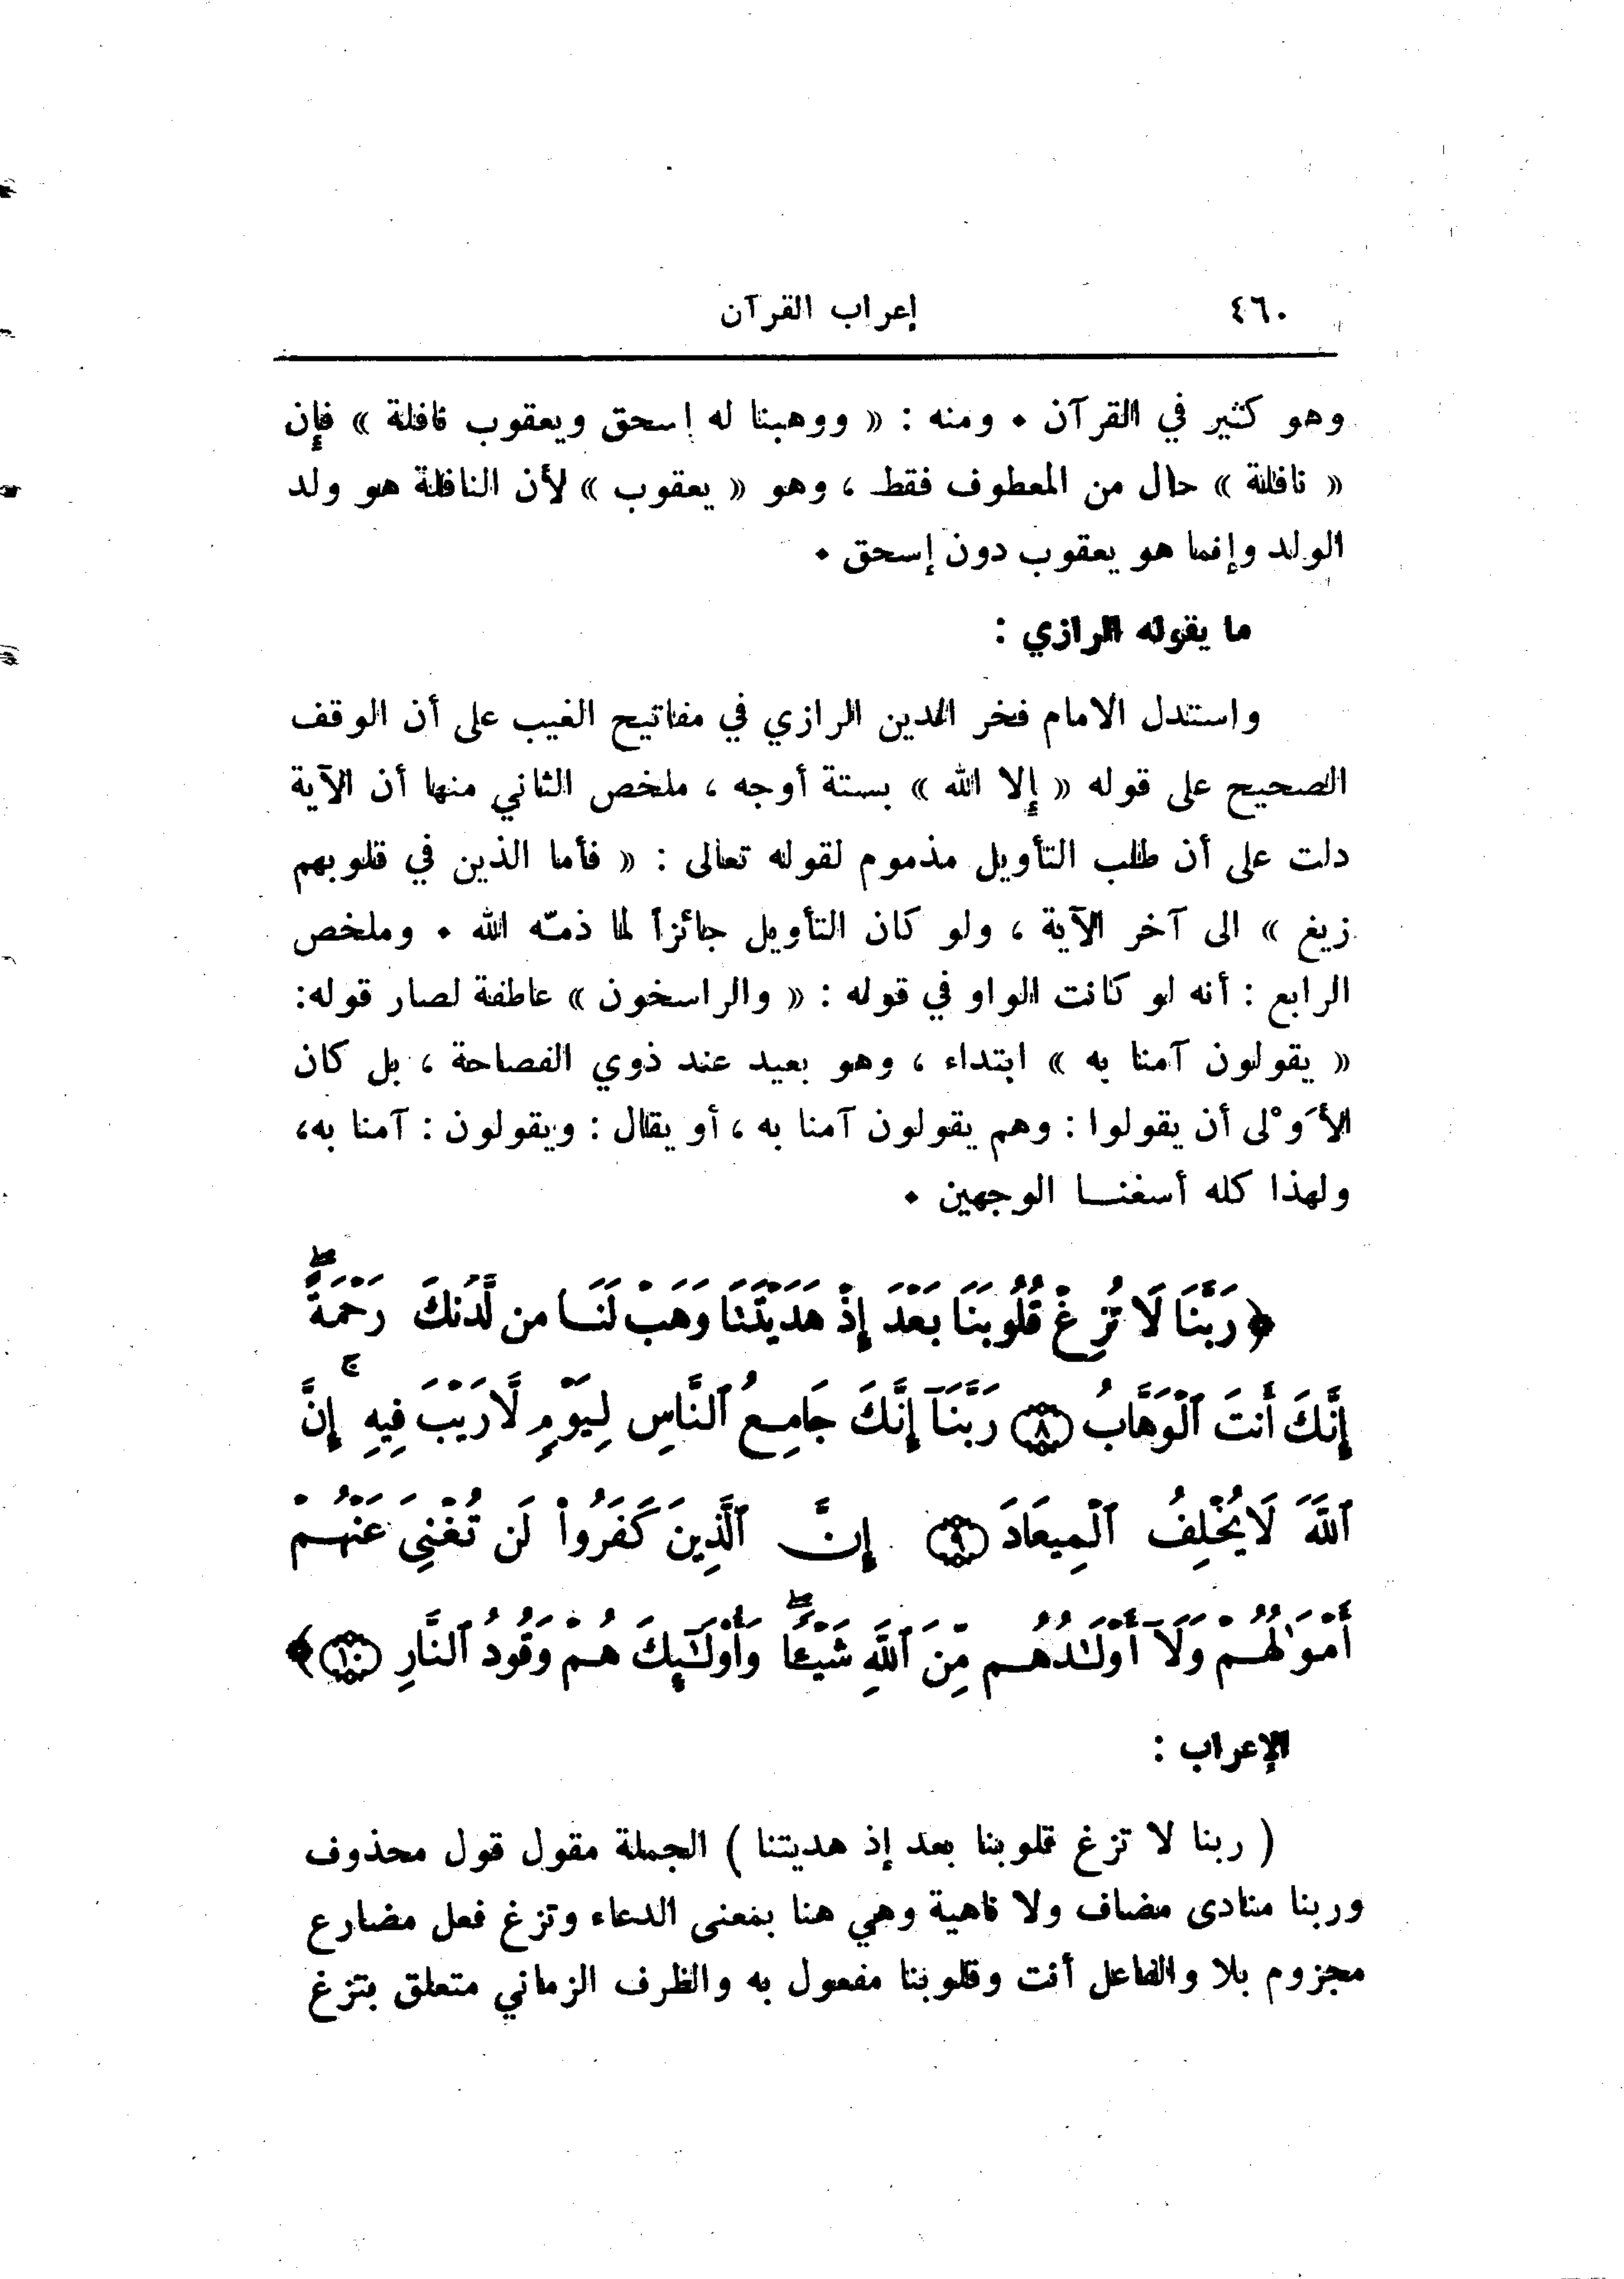 ٤٦٠ إعراب القرآن
وهو كثير في القرآن . ومنه : « ووهبنا له إسحق ويعقوب نافلة » فإن
« نافلة » حال من المعطوف فقط ، وهو « يعقوب » لأن النافلة هو ولد
الولد وإنما هو يعقوب دون إسحق .
ما يقوله الرازي :
واستدل الامام فخر الدين الرازي في مفاتيح الغيب على أن الوقف
الصحيح على قوله « إلا الله » بستة أوجه ، ملخص الثاني منها أن الآية
دلت على أن طلب التأويل مذموم لقوله تعالى : « فأما الذين في قلوبهم
زيغ » الى آخر الآية ، ولو كان التأويل جائزاً لما ذمّه الله . وملخص
الرابع : أنه لو كانت الواو في قوله : « والراسخون » عاطفة لصار قوله:
« يقولون آمنا به » ابتداء ، وهو بعيد عند ذوي الفصاحة ، بل كان
الأَوْلى أن يقولوا : وهم يقولون آمنا به ، أو يقال : ويقولون : آمنا به،
ولهذا كله أسغنا الوجهين .
﴿ رَبَّنَا لَا تُزِغْ قُلُوبَنَا بَعْدَ إِذْ هَدَيْتَنَا وَهَبْ لَنَا من لَّدُنكَ رَحْمَةً ۖ
إِنَّكَ أَنتَ ٱلْوَهَّابُ ﴿٨﴾ رَبَّنَآ إِنَّكَ جَامِعُ ٱلنَّاسِ لِيَوْمٍ لَّارَيْبَ فِيهِ ۚ إِنَّ
ٱللَّهَ لَا يُخْلِفُ ٱلْمِيعَادَ ﴿٩﴾ إِنَّ ٱلَّذِينَ كَفَرُواْ لَن تُغْنِىَ عَنْهُمْ
أَمْوَٰلُهُمْ وَلَآ أَوْلَٰدُهُم مِّنَ ٱللَّهِ شَيْـًٔا ۖ وَأُوْلَٰٓئِكَ هُمْ وَقُودُ ٱلنَّارِ ﴿١٠﴾ ﴾
الإعراب :
( ربنا لا تزغ قلوبنا بعد إذ هديتنا ) الجملة مقول قول محذوف
وربنا منادى مضاف ولا ناهية وهي هنا بمعنى الدعاء وتزغ فعل مضارع
مجزوم بلا والفاعل أنت وقلوبنا مفعول به والظرف الزماني متعلق بتزغ